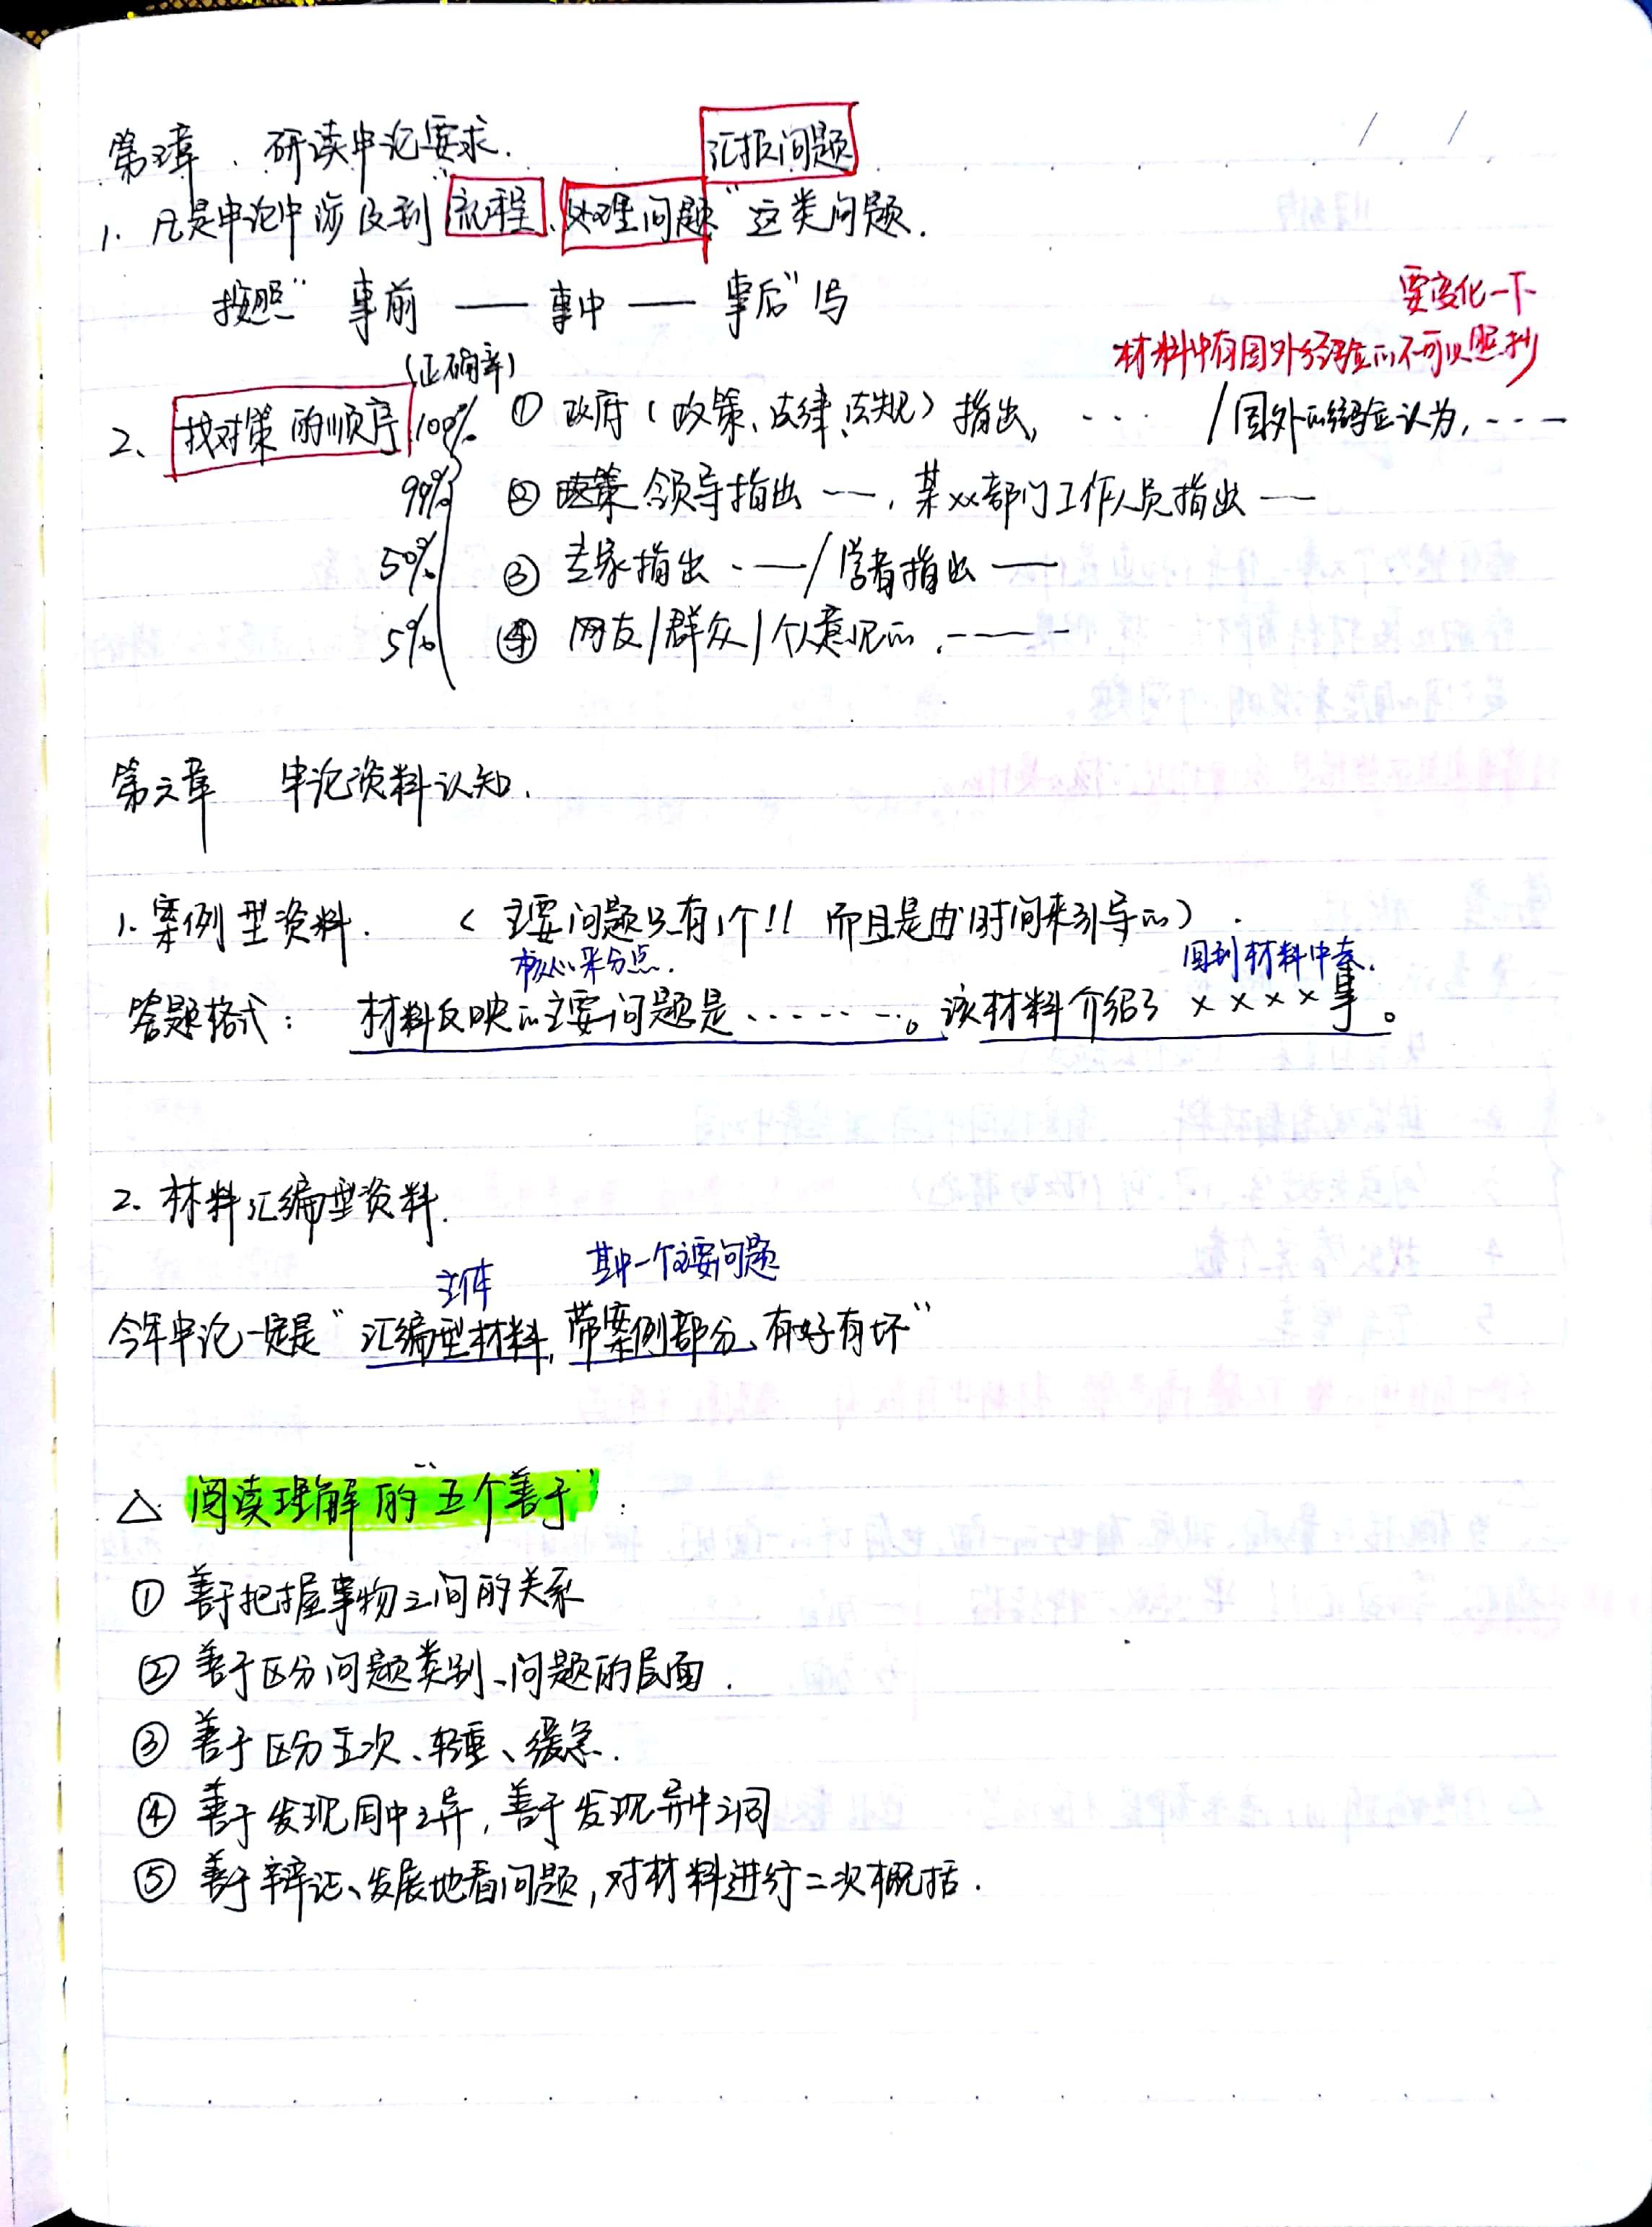 第五章 . 研读申论要求.
汇报问题
1. 凡是申论中涉及到“流程、处理问题”这类问题.
按照“事前 — 事中 — 事后”写
要变化一下
材料中有国外经验的不可以照抄
(正确率)
2、找对策的顺序 100% ① 政府(政策、法律、法规)指出, ···· /国外的经验认为, ····
99% ② 政策 领导指出 ·—, 某xx部门工作人员指出 ·—
50% ③ 专家指出 ·—/学者指出 —
5% ④ 网友/群众/个人意见的, ·——
第六章 申论资料认知.
1. 案例型资料. (主要问题只有1个!! 而且是由时间来引导的).
核心采分点. 回到材料中去.
答题格式: 材料反映的主要问题是·······。该材料介绍了××××事。
2. 材料汇编型资料.
主体 其中一个主要问题
今年申论一定是“汇编型材料, 带案例部分、有好有坏”
△ 阅读理解的“五个善于”:
① 善于把握事物之间的关系
② 善于区分问题类别、问题的层面.
③ 善于区分主次、轻重、缓急.
④ 善于发现同中之异, 善于发现异中之同
⑤ 善于辩证、发展地看问题, 对材料进行二次概括.